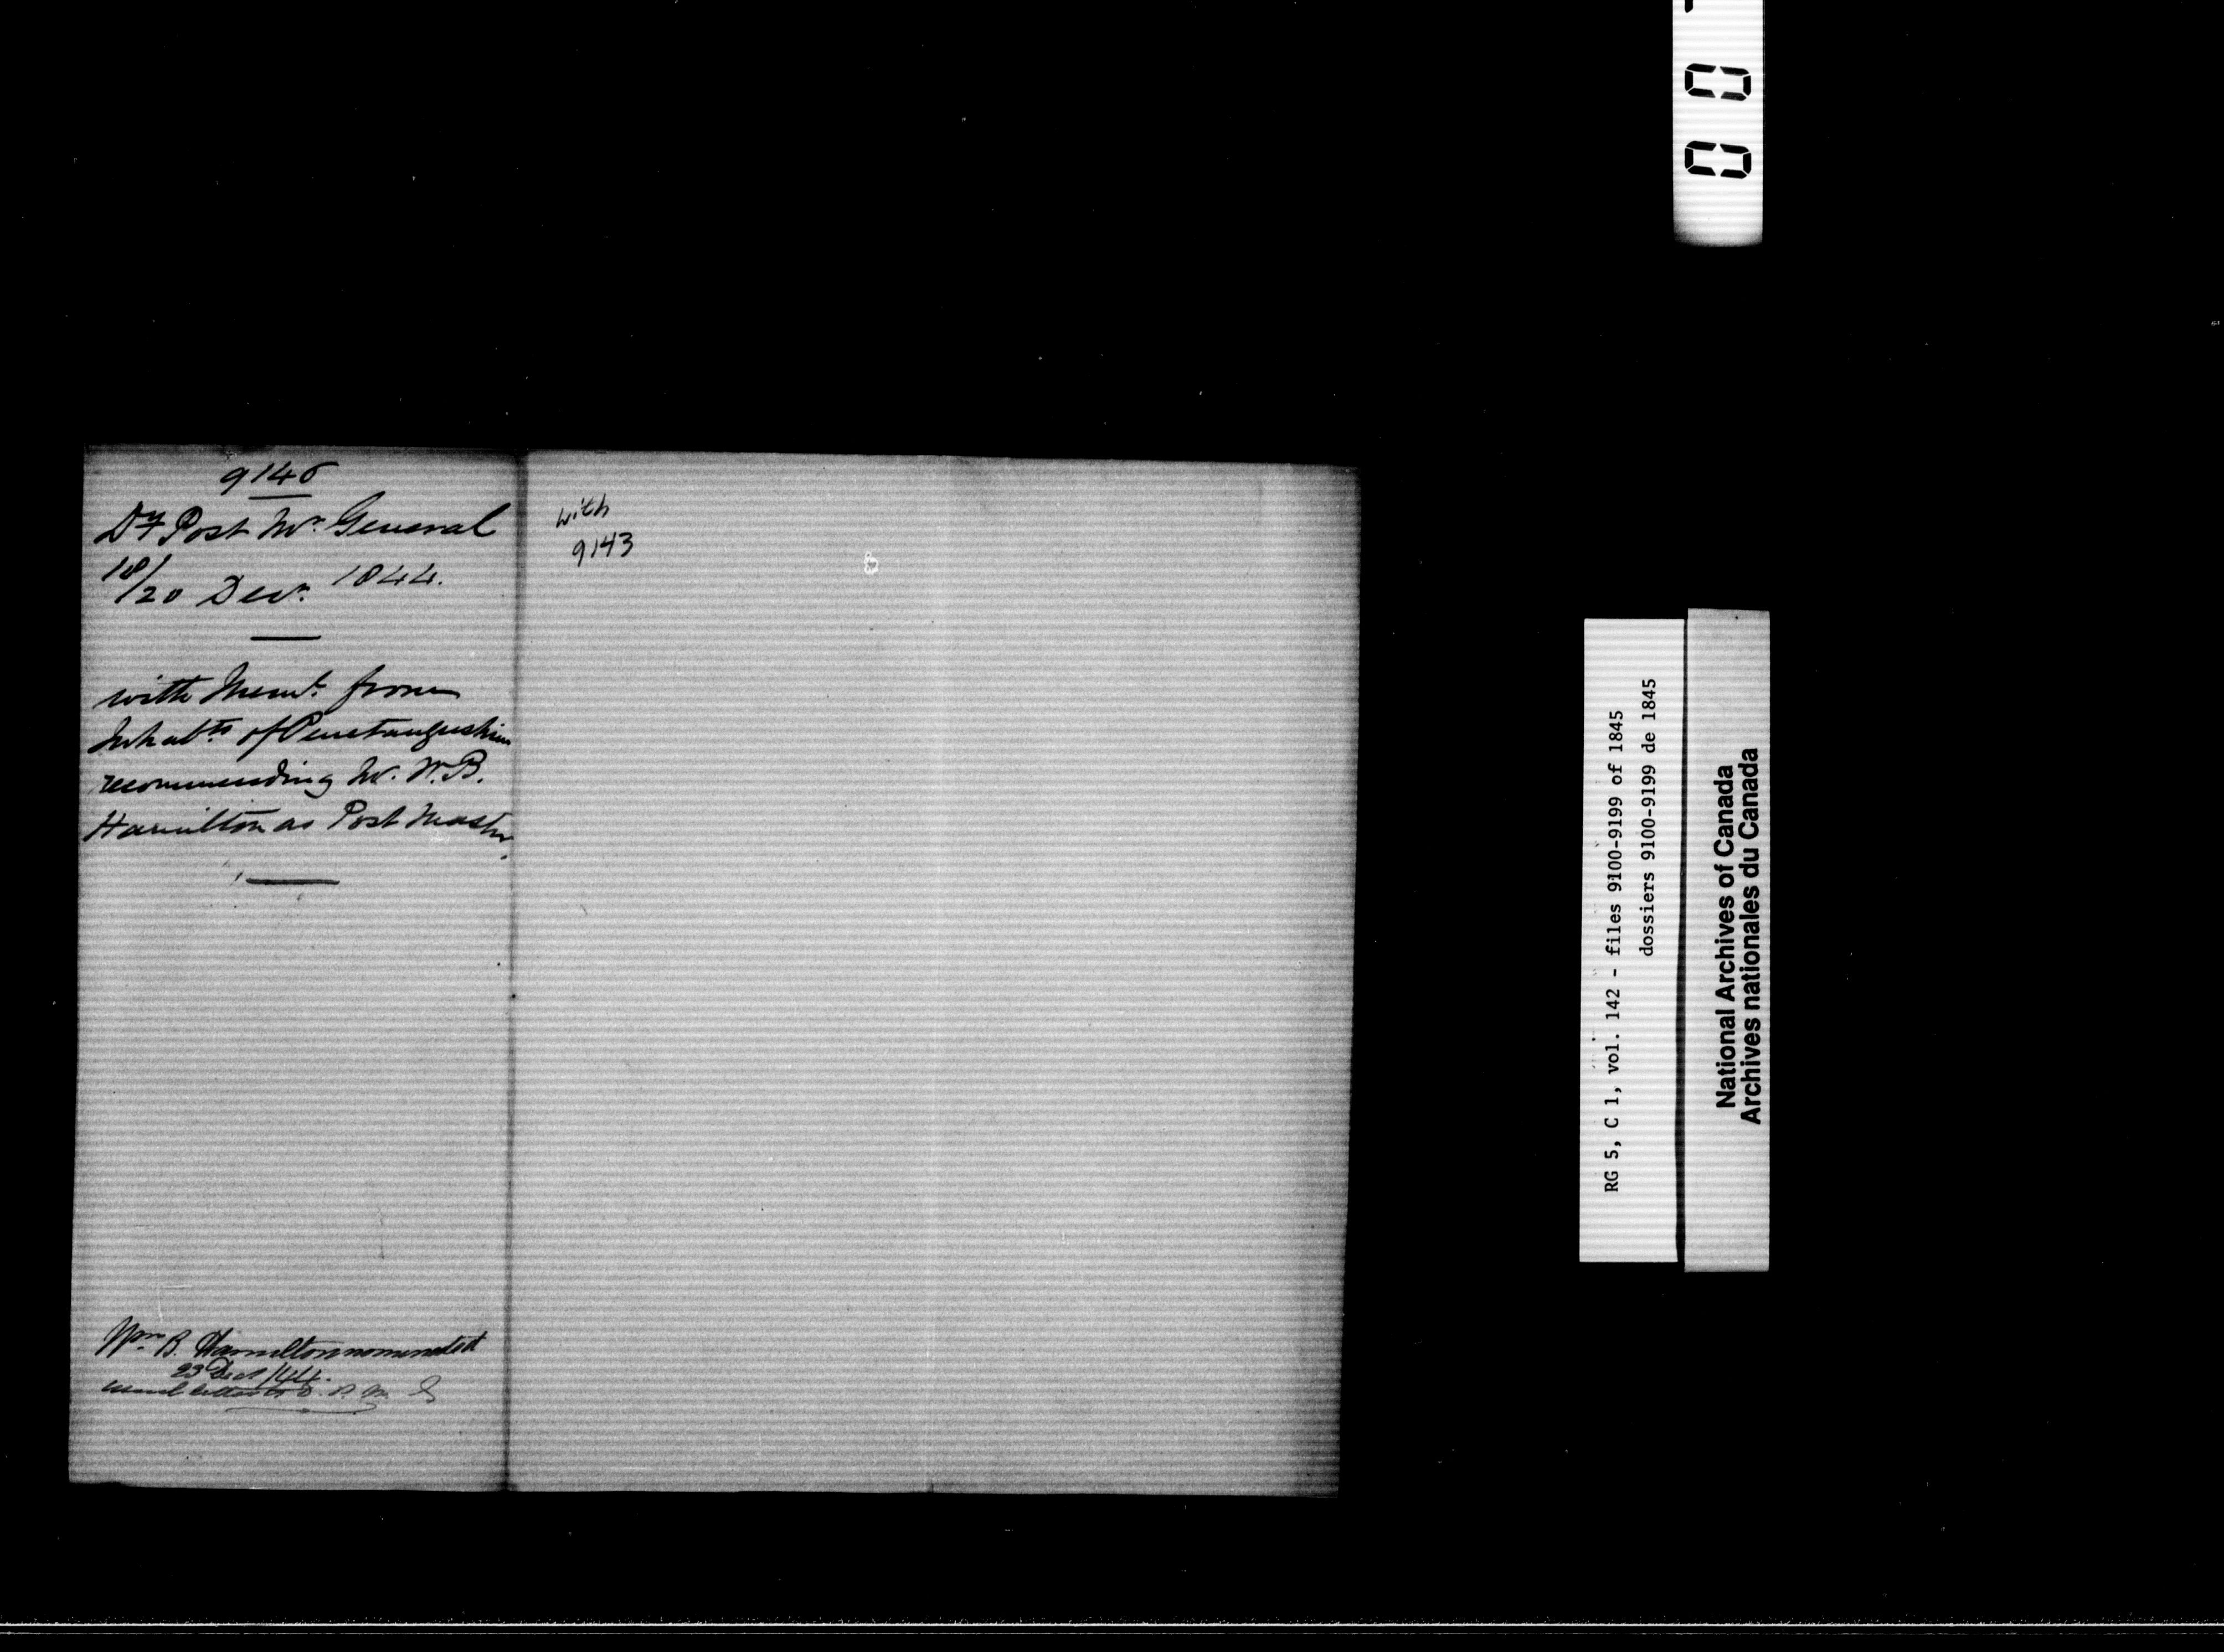 9146
Dy Post Mr. General
18/20 Decr. 1844.
with Meml. from
Inhabts of Penetanguishine
recommending Mr. W. B.
Hamilton as Post Master.
Wm. B. Hamilton nominated
23 Decr /44.
usual letter to D. P. M. G
with
9143
RG 5, C 1, vol. 142 - files 9100-9199 of 1845
dossiers 9100-9199 de 1845
National Archives of Canada
Archives nationales du Canada
0 0